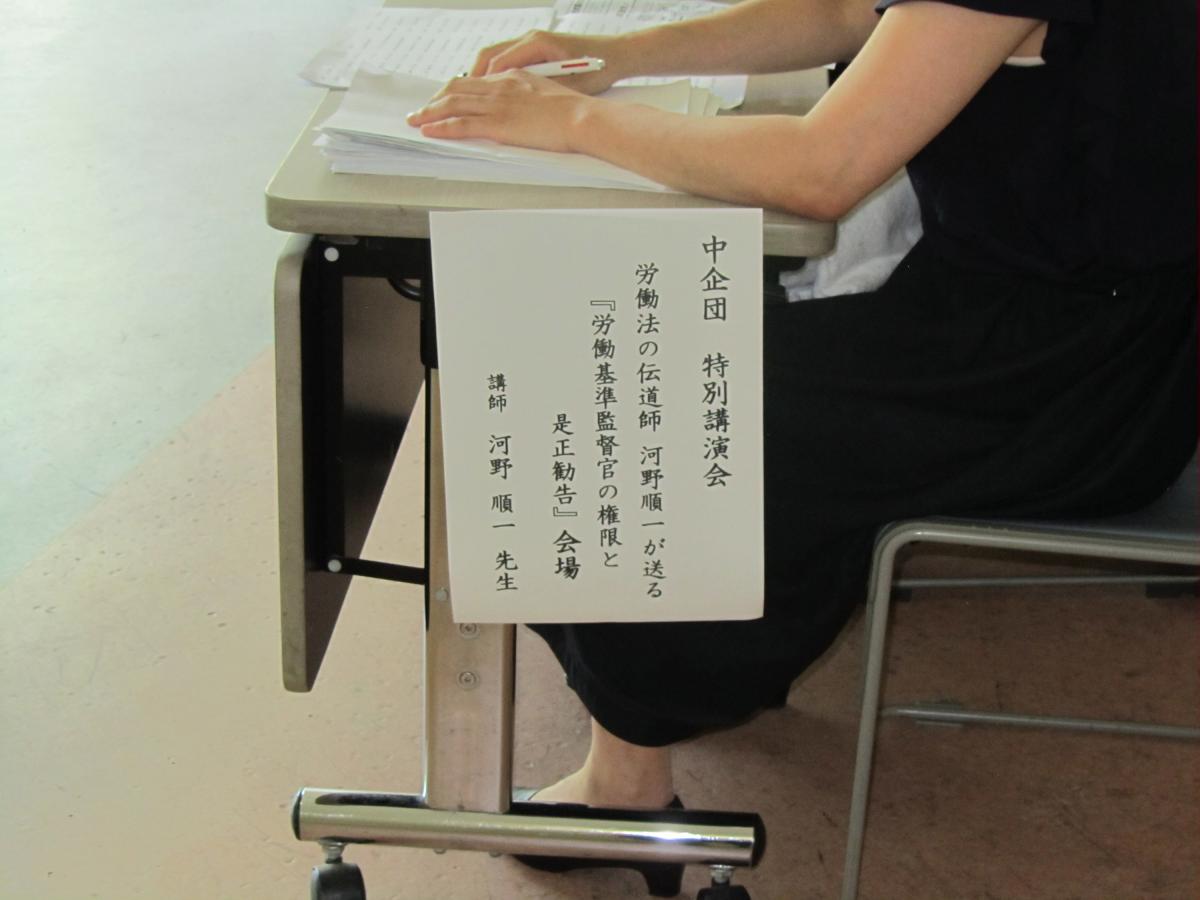 中企団　特別講演会
労働法の伝道師 河野順一が送る
『労働基準監督官の権限と
是正勧告』会場
講師　河野 順一 先生